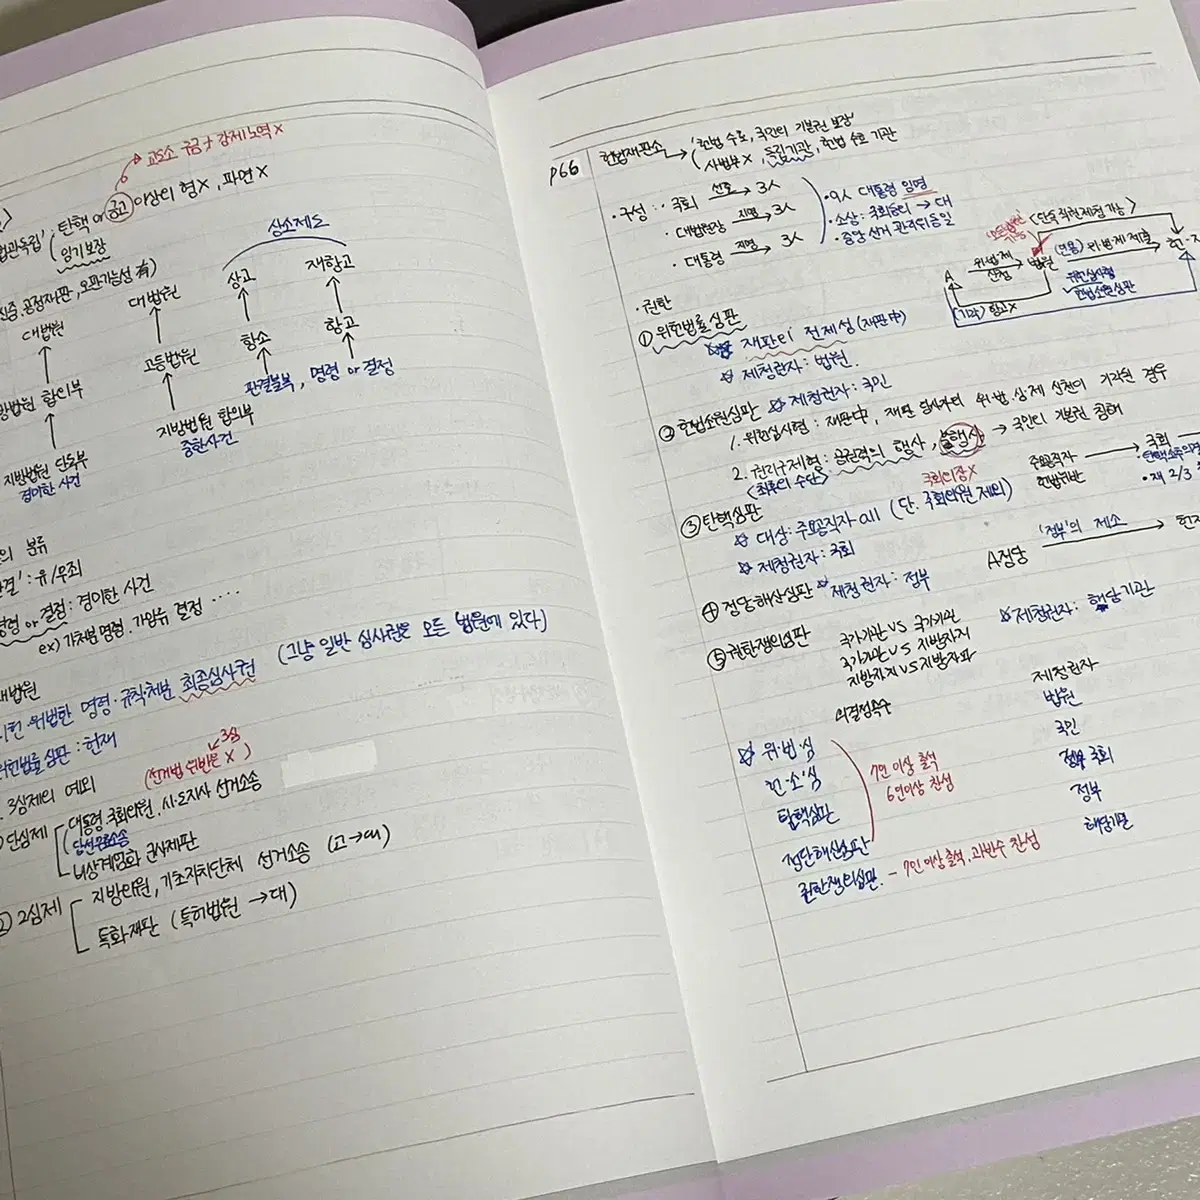 교도소 구금 + 강제노역 X
탄핵 or 금고 이상의 형 X, 파면 X
임기 보장
공정재판, 오판가능성 有)
상소제도
대법원
대법원
상고
재항고
고등법원
항소
항고
지방법원 합의부
판결불복, 명령 or 결정
지방법원 합의부
중한사건
지방법원 단독부
경미한 사건
의 분류
: 유/무죄
명령 or 결정 : 경미한 사건
ex) 가처분 명령, 가압류 결정 ....
대법원
위헌·위법한 명령·규칙·처분 최종심사권 (그냥 일반 심사권은 모든 법원에 있다)
위헌법률심판 : 헌재
3심
3심제의 예외 (선거법 위반은 X)
① 단심제
대통령, 국회의원, 시·도지사 선거소송
당선무효소송
비상계엄하 군사재판
② 2심제
지방의원, 기초자치단체 선거소송 (고→대)
특허재판 (특허법원 → 대)
p66
헌법재판소 → '헌법 수호, 국민의 기본권 보장'
사법부 X, 독립기관, 헌법 수호 기관
· 구성 : · 국회 선출 → 3人
· 대법원장 지명 → 3人
· 대통령 지명 → 3人
· 9人 대통령 임명
· 소장 : 국회동의 → 대
· 중앙 선거 관리위 동일
<단독 직권제청 가능>
A
위·법·제
신청
법원
(인용) 위·법·제 제청
헌·
위헌심사형
헌법소원심판
(기각) 항고 X
· 권한
① 위헌법률심판
☆ 재판의 전제성 (재판中)
☆ 제청권자 : 법원
② 헌법소원심판 ☆ 제청권자 : 국민
1. 위헌심사형 : 재판中, 재판 당사자의 위·법·심·제 신청이 기각된 경우
2. 권리구제형 : 공권력의 행사, 불행사 → 국민의 기본권 침해
<최후의 수단>
국회의장 X
주요공직자
헌법위반
국회
· 탄핵소추의결
· 재 2/3
③ 탄핵심판
☆ 대상 : 주요공직자 all (단, 국회의원 제외)
☆ 제청권자 : 국회
A정당
'정부'의 제소
헌재
④ 정당해산심판 ☆ 제청권자 : 정부
⑤ 권한쟁의심판
국가기관 VS 국가기관
국가기관 VS 지방자치
지방자치 VS 지방자치
☆ 제청권자 : 해당기관
의결정족수
제청권자
☆ 위·법·심
법원
헌·소·심
국민
탄핵심판
국회
정당해산심판
정부
7인 이상 출석
6인이상 찬성
권한쟁의심판 - 7인 이상 출석, 과반수 찬성
해당기관